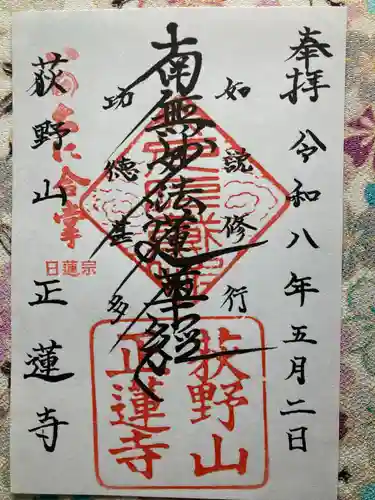 奉拝 令和八年五月二日
如説修行
南無妙法蓮華経
功徳甚多
荻野山 正蓮寺
合掌
日蓮宗
荻野山
正蓮寺